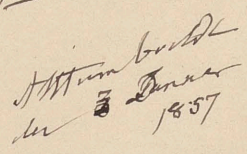 AHumboldt
den 3 Januar
1857